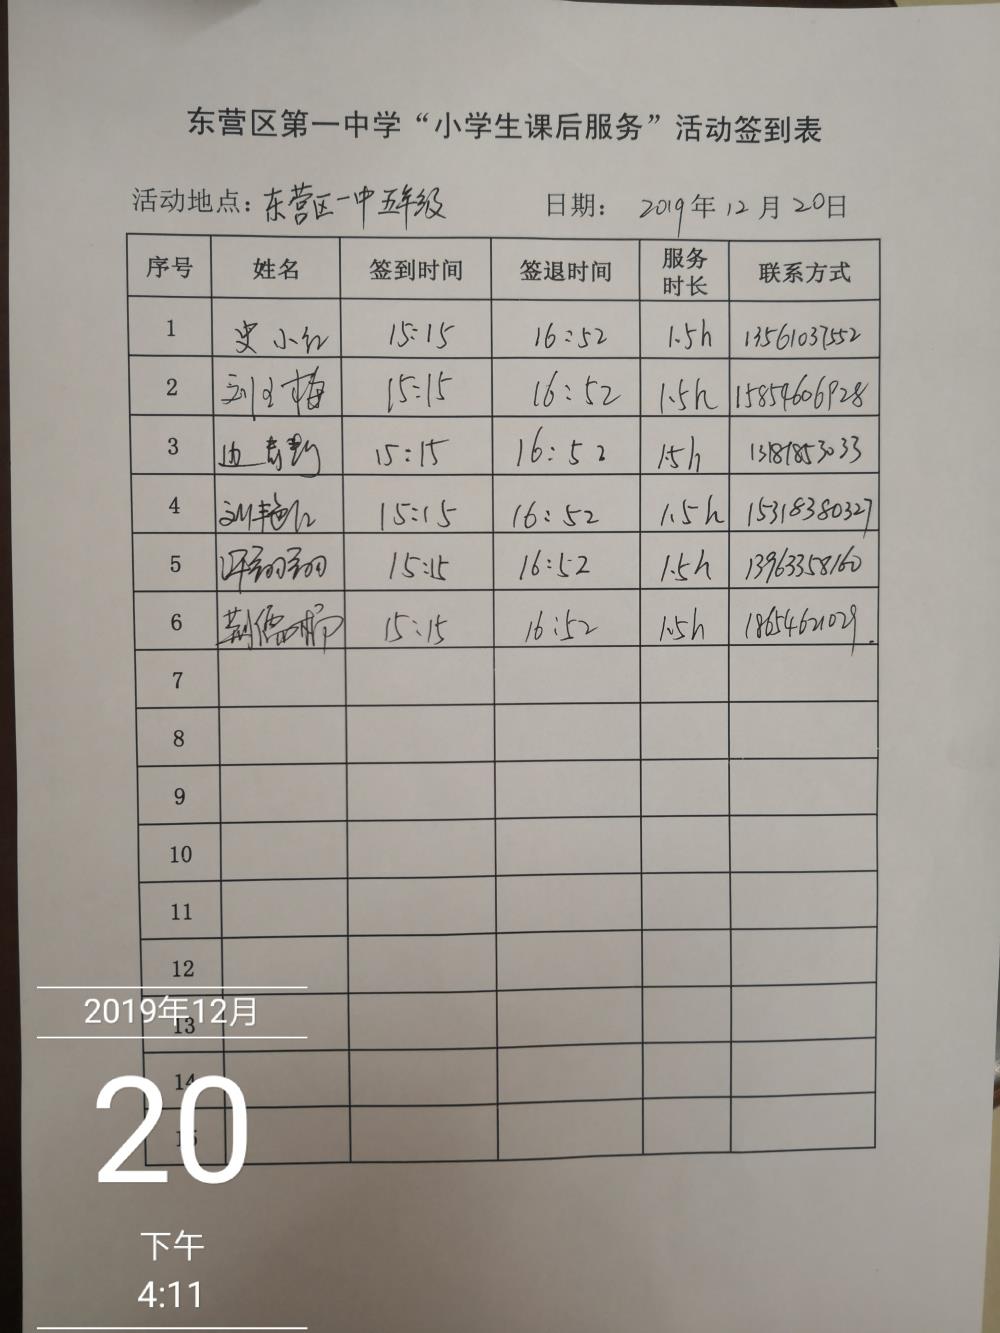 东营区第一中学“小学生课后服务”活动签到表
活动地点：东营区一中五年级 日期： 2019年12月20日
序号 姓名 签到时间 签退时间 服务时长 联系方式
1 史小红 15:15 16:52 1.5h 13561037552
2 15:15 16:52 1.5h 15854606928
3 15:15 16:52 1.5h 13181853033
4 刘艳红 15:15 16:52 1.5h 15318380327
5 许翠翠 15:15 16:52 1.5h 13963358160
6 15:15 16:52 1.5h 18654621029
7
8
9
10
11
12
2019年12月
13
14
20
15
下午
4:11